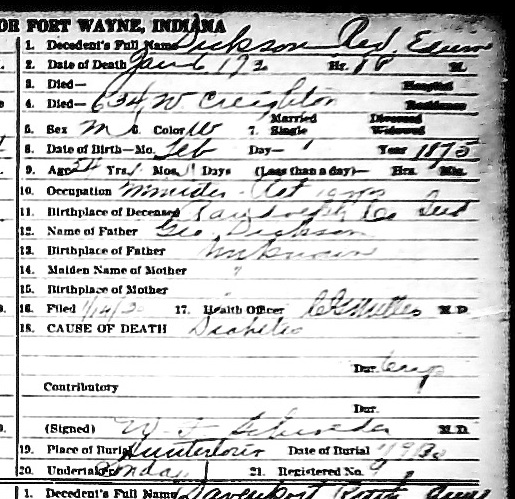 OR FORT WAYNE, INDIANA
1. Decedent's Full Name Dickson Rev. Edwin
2. Date of Death Jan 6 193 Hr. M.
3. Died— Hospital
4. Died— 634 W. Creighton Residence
5. Sex M 6. Color W 7. Married Single Divorced Widowed
8. Date of Birth—Mo. Feb Day— 1 Year 1875
9. Age 54 Yrs. Mos. 11 Days (Less than a day)— Hrs. Min.
10. Occupation Minister
11. Birthplace of Deceased Randolph Co Ind
12. Name of Father Geo. Dickson
13. Birthplace of Father Unknown
14. Maiden Name of Mother "
15. Birthplace of Mother
16. Filed 1/14/30 17. Health Officer M.D.
18. CAUSE OF DEATH Diabetes
Dur.
Contributory
Dur.
(Signed) W. F. M.D.
19. Place of Burial Huntertown Date of Burial 1/9/30
20. Undertaker 21. Registered No. 9
1. Decedent's Full Name Davenport